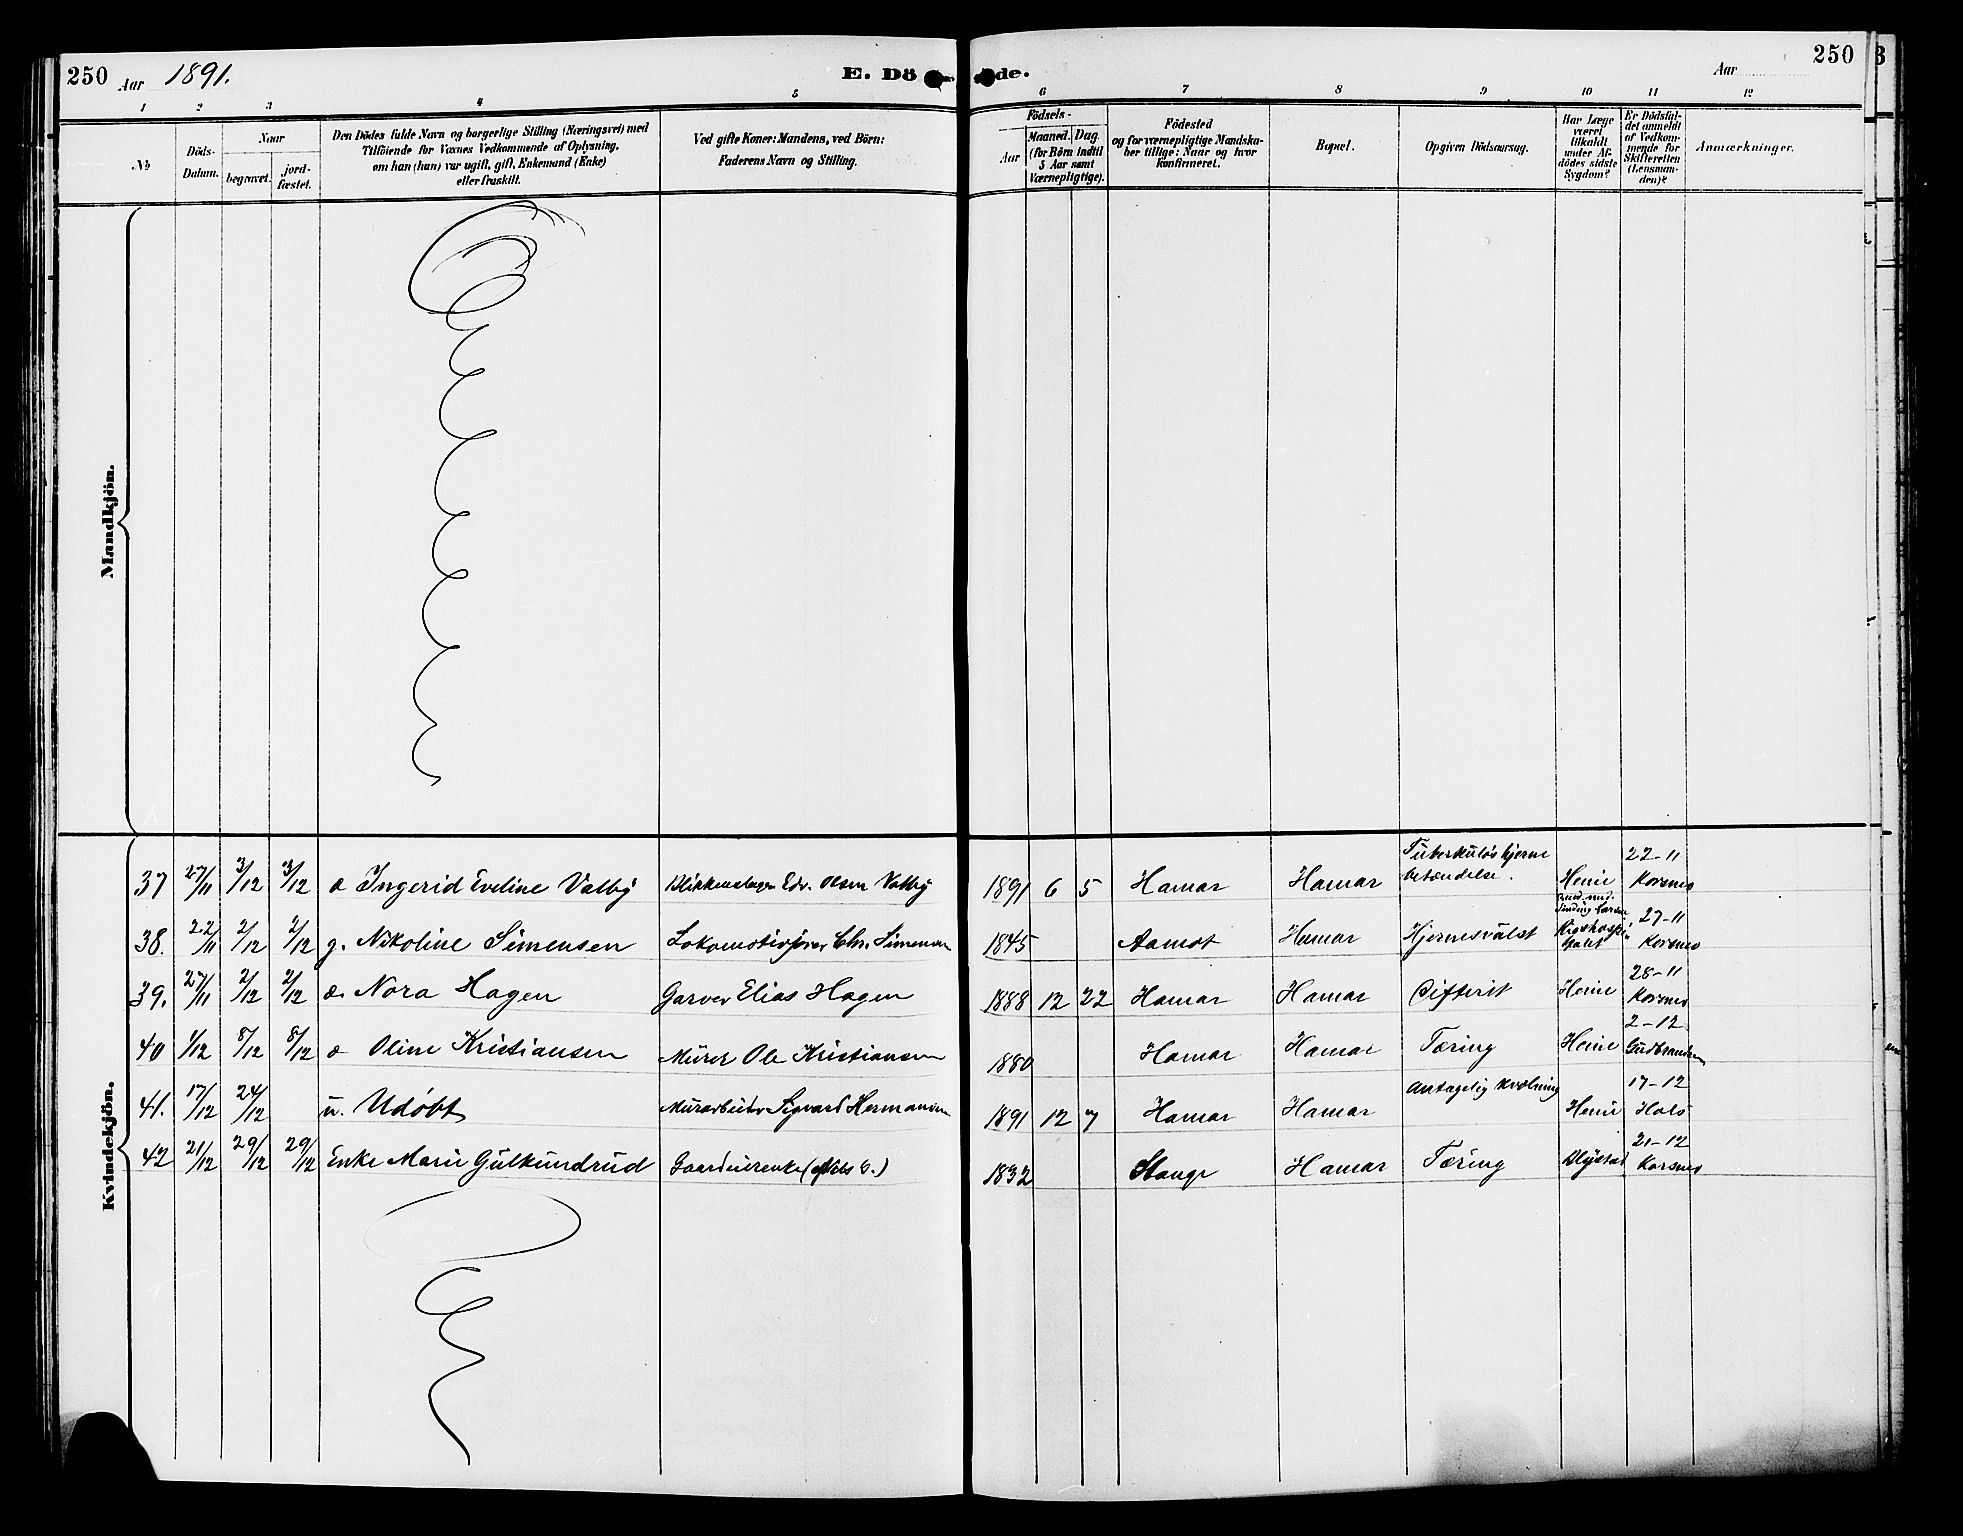 250 Aar 1891. E. Dö de. Aar 250
1 2 3 4 5 6 7 8 9 10 11 12
№
Döds-Datum.
Naar
begravet.
jord-fæstet.
Den Dödes fulde Navn og borgerlige Stilling (Næringsvei) med
Tilföiende for Voxnes Vedkommende af Oplysning,
om han (hun) var ugift, gift, Enkemand (Enke)
eller fraskilt.
Ved gifte Koner: Mandens, ved Börn:
Faderens Navn og Stilling.
Födsels-
Aar
Maaned. Dag.
(for Börn indtil
5 Aar samt
Værnepligtige).
Födested
og for værnepligtige Mandska-
ber tillige: Naar og hvor
konfirmeret.
Bopæl.
Opgiven Dödsaarsag.
Har Læge
været
tilkaldt
under Af-
dödes sidste
Sygdom?
Er Dödsfal-
det anmeldt
af Vedkom-
mende for
Skifteretten
(Lensman-
den)?
Anmærkninger.
Mandkjön.
Kvindekjön.
37 27/11 3/12 3/12 Ingerid Eveline Valby Blikkenslager Edv. Olsen Valby 1891 6 5 Hamar Hamar Tuberkuløs hjerne betændelse. Heine 27-11 Korsmo
38. 22/11 2/12 2/12 g. Nikoline Simensen Lokomotivfører Chr. Simensen 1845 Aamot Hamar Hjernesvulst Rigshospitalet 27-11 Korsmo
39. 27/11 2/12 2/12 Nora Hagen Garver Elias Hagen 1888 12 22 Hamar Hamar Difterit Heine 28-11 Korsmo
40 1/12 8/12 8/12 Oline Kristiansen Murer Ole Kristiansen 1880 Hamar Hamar Tæring Heine 2-12 Gudbrandsen
41. 17/12 24/12 u. Udøbt Murarbeider Sigvard Hermansen 1891 12 7 Hamar Hamar Antagelig kvælning Heine 17-12 Hols
42 21/12 29/12 29/12 Enke Marie Gulkundrud Gaardeierenke 1832 Stange Hamar Tæring 21-12 Korsmo